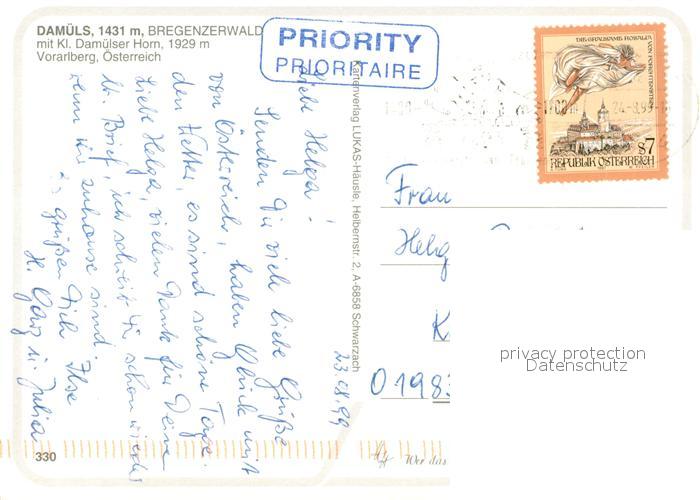 DAMÜLS, 1431 m, BREGENZERWALD
mit Kl. Damülser Horn, 1929 m
Vorarlberg, Österreich
PRIORITY
PRIORITAIRE
DIE GRAUSAME ROSALIA VON FORCHTENSTEIN
S7
REPUBLIK ÖSTERREICH
24-8.99
Kartenverlag LUKAS-Häusle, Helbernstr. 2, A-6858 Schwarzach
23.08.99
Liebe Helga!
Senden Dir viele liebe Grüße
von Österreich, haben Glück mit
den Wetter, es sind schöne Tage.
Liebe Helga, vielen Dank für Deine
lb. Brief, ich schreib Dir schon wieder
wenn wir zuhause sind.
Es grüßen Dich Ilse
u. Julia
Frau
Helg
K
0198
privacy protection
Datenschutz
330
Wer das